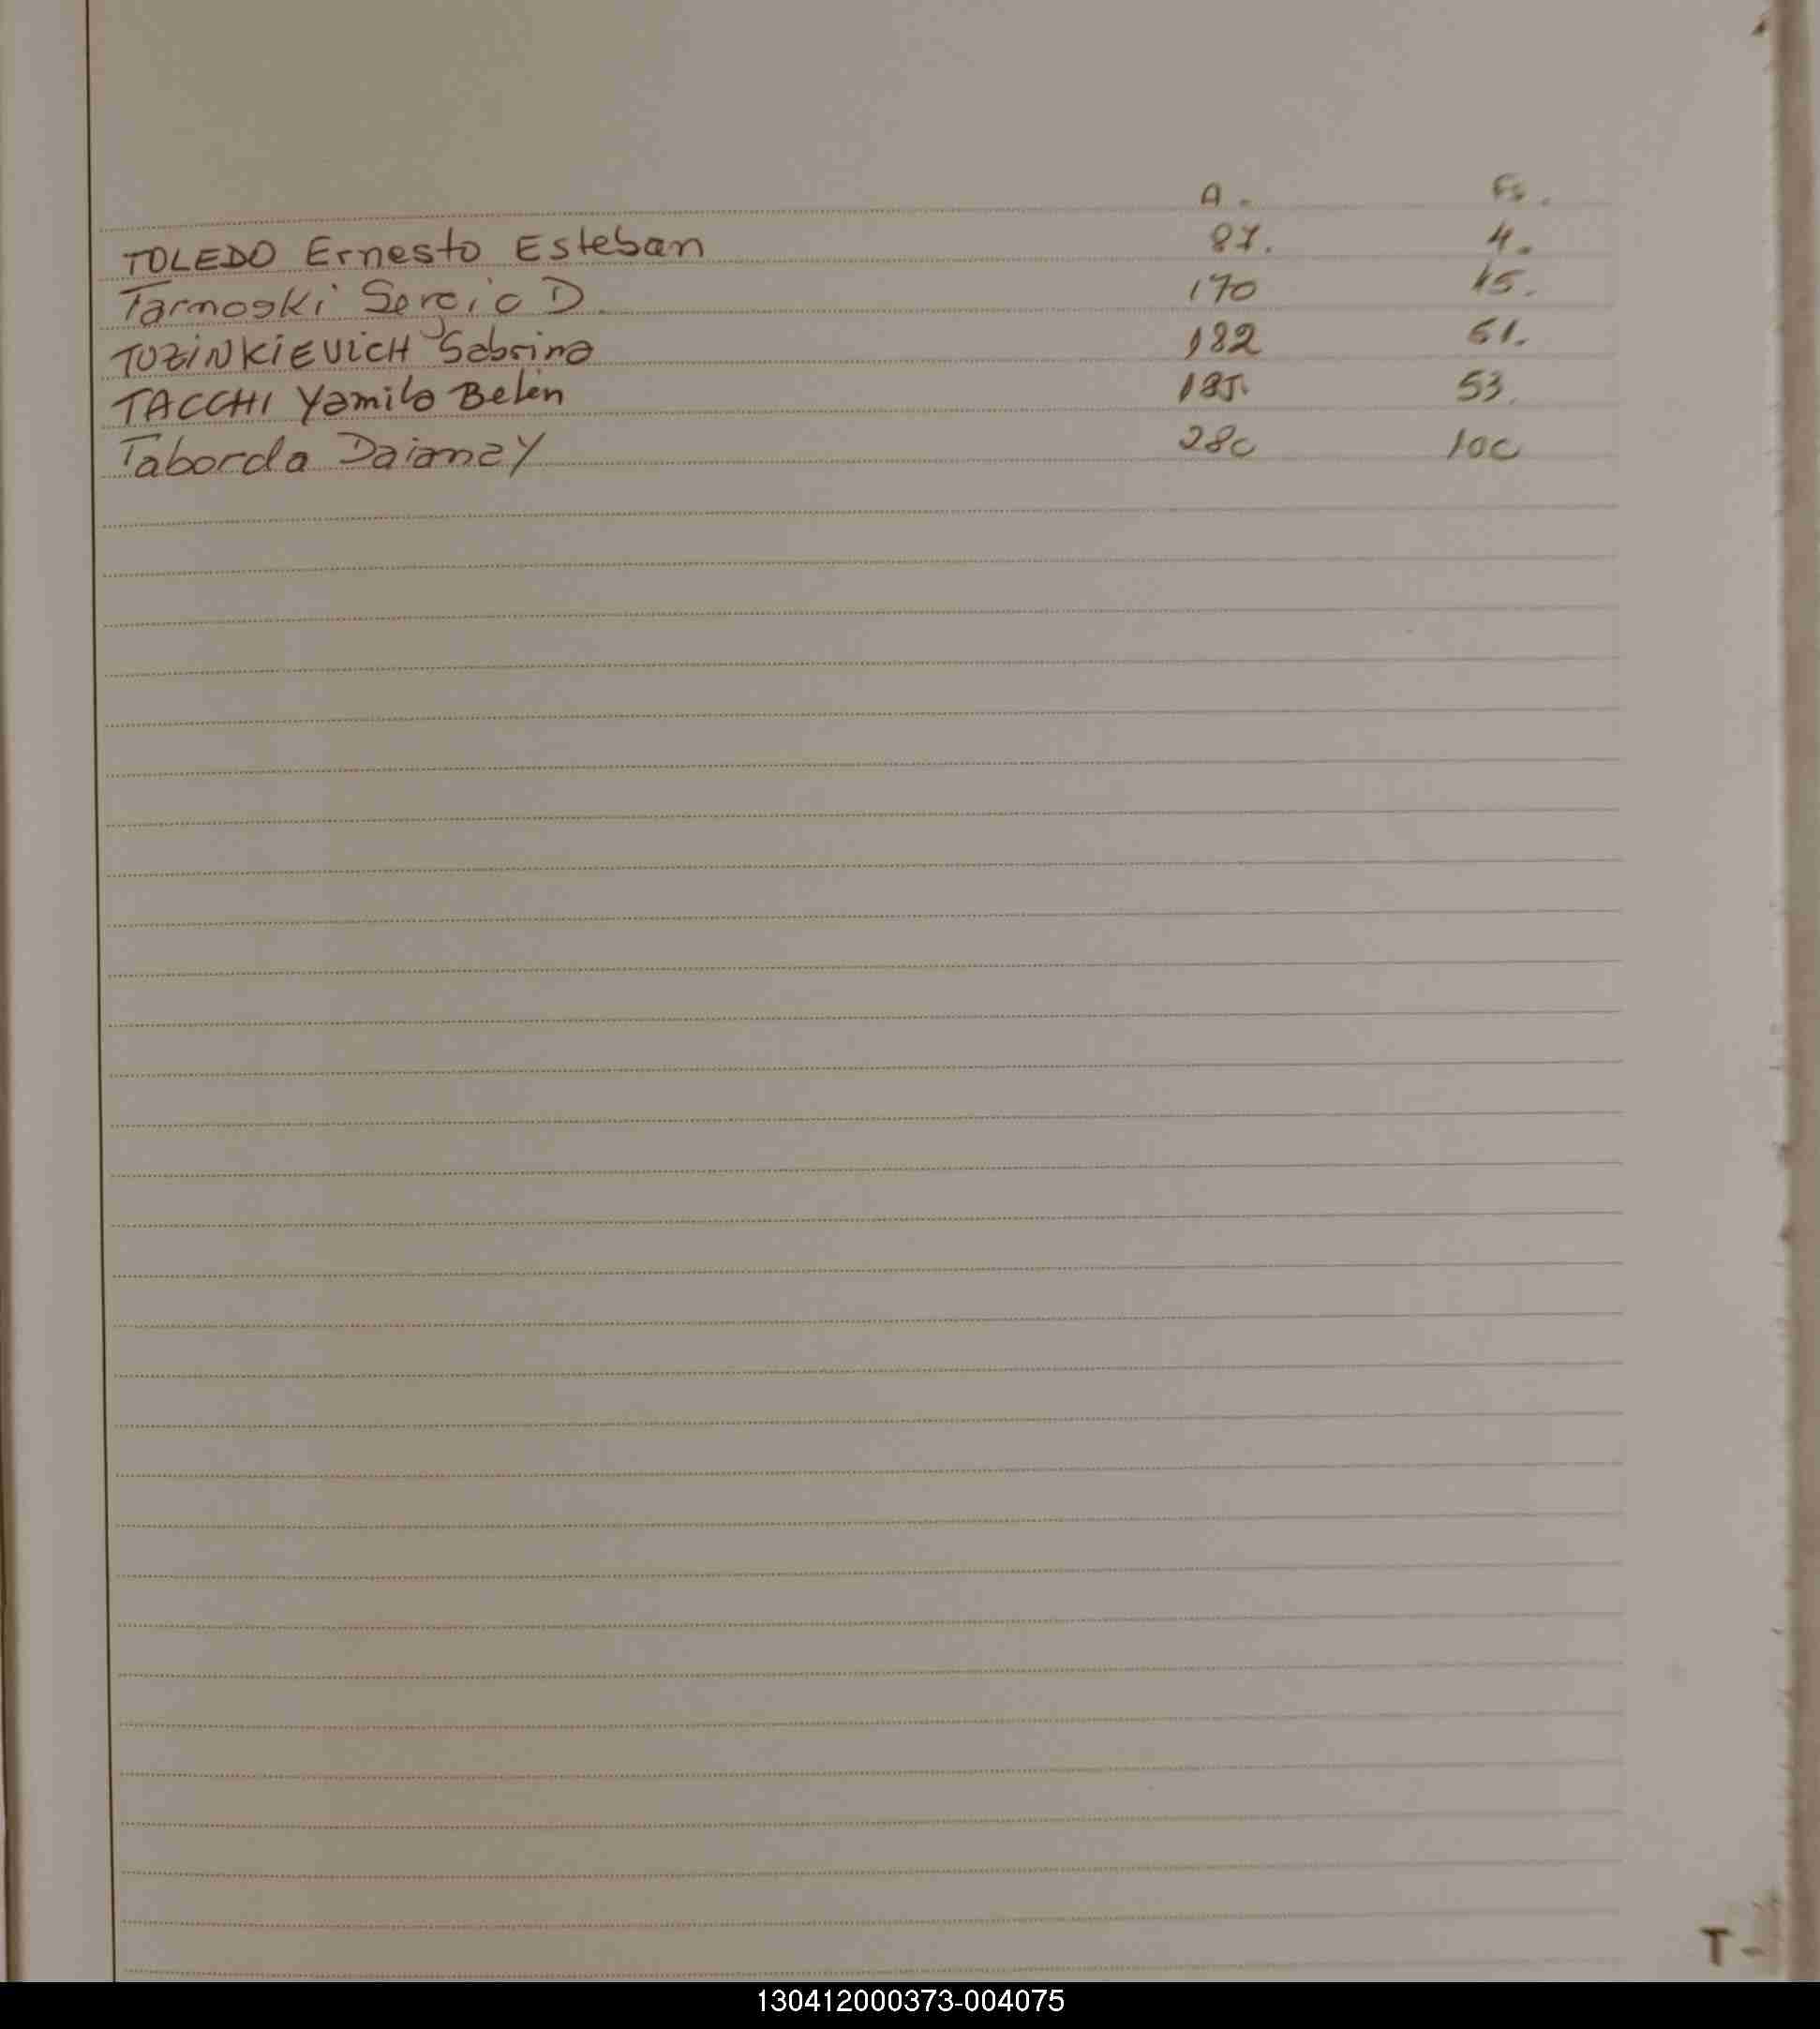 A. Fs.
TOLEDO Ernesto Esteban 87. 4.
Tarnoski Sergio D. 170 45.
TUZiNKiEVICH Sabrina 182 51.
TACCHI Yamila Belén 185. 53.
Taborda Daiana Y 280 100
T-
130412000373-004075